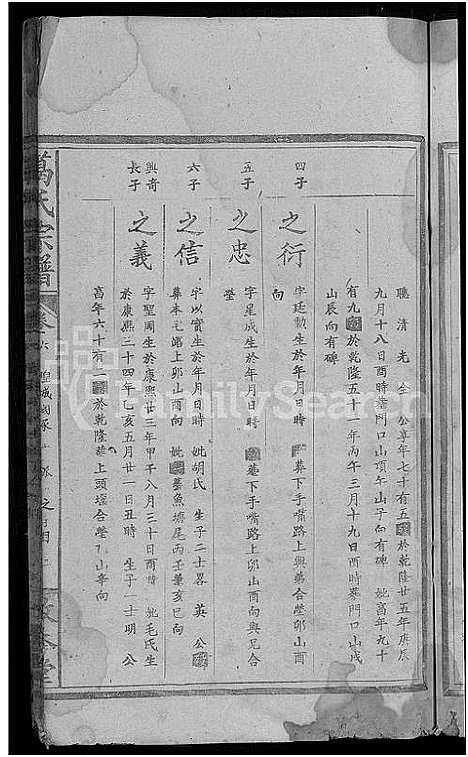 聰 清 光 全 公享年七十有五於乾隆廿五年庚辰
九月十八日酉時葬門口山頂午山子向有碑 妣高年九十
有九於乾隆五十一年丙午三月十九日酉時葬門口山戌
山辰向有碑
四子
之衍 字廷勳生於年月日時 葬下手嘴路上與弟合塋卯山酉
向
五子
之忠 字星成生於年月日時 葬下手嘴路上卯山酉向與兄合
塋
六子
之信 字以實生於年月日時 妣胡氏 生子二士畧 英 公
葬本宅路上卯山酉向 妣葬魚塘尾丙壬兼亥巳向
興奇
長子
之義 字聖周生於康熙廿三年甲午八月三十日酉時 妣毛氏生
於康熙三十四年乙亥五月廿一日丑時 生子一士明 公
高年六十有二於乾隆 葬上頭塅合塋 山 向
萬氏宗譜
卷六
FamilySearch